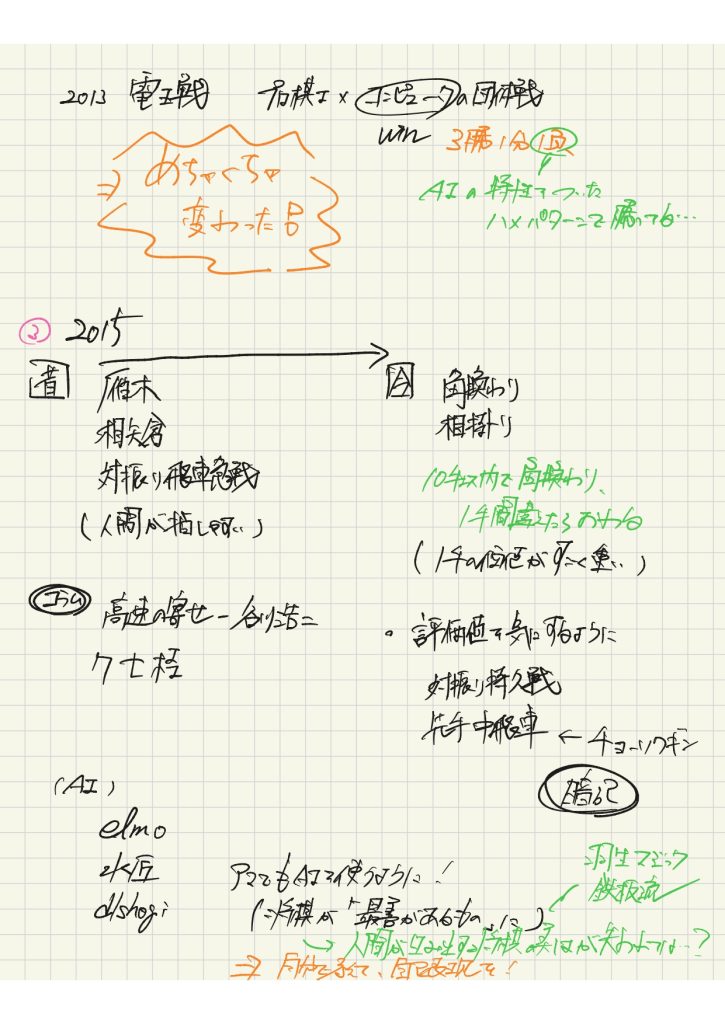 2013 電王戦 名棋士×コンピュータの団体戦
win 3勝1分1負
⇒ めちゃくちゃ
変わった日
AIの特性をついた
ハメパターンで勝っても…
③ 2015
昔
雁木
相矢倉
対振り飛車急戦
(人間が指しやすい)
今
角換わり
相掛り
10手以内で角換わり、
1手間違えたらおわる
(1手の価値がすごく重い)
コラム 高速の寄せ－谷川浩二
7七桂
・評価値を気にするように
対振り持久戦
先手中飛車 ← チョーソクギン
暗記
(AI)
elmo
水匠
dlshogi
アマでもAIを使うように!
(将棋が「最善があるもの」に)
羽生マジック
鉄板流
→ 人間が生み出す将棋の実はが失われては…?
⇒ 自分で考えて、自己表現を!